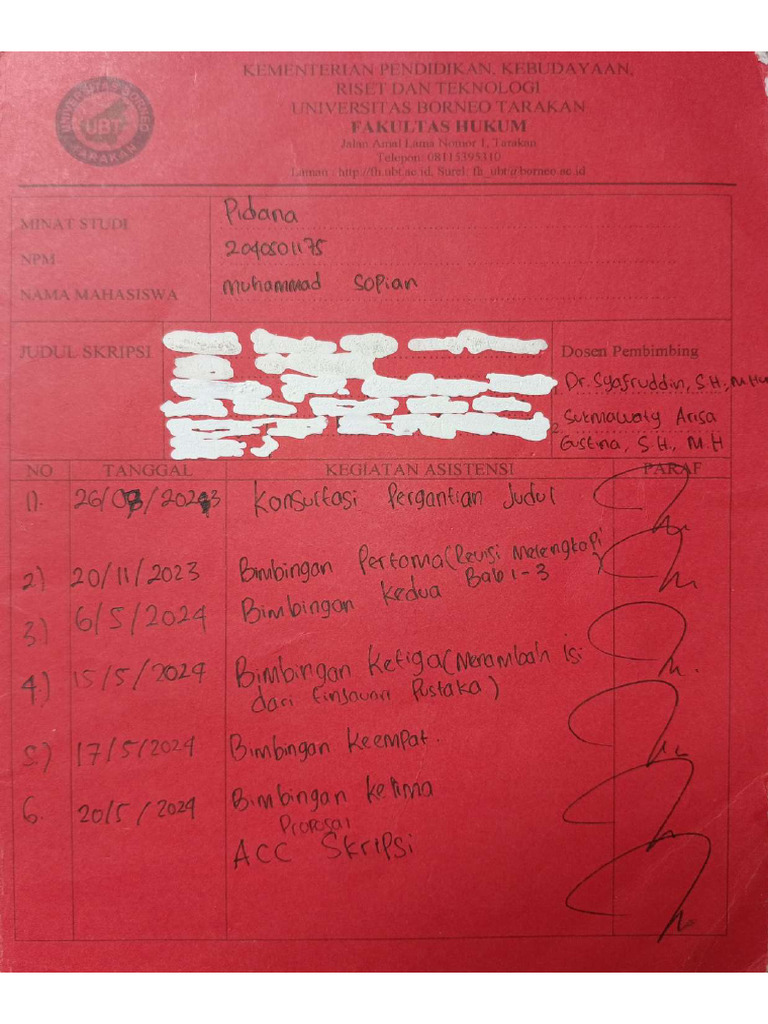 KEMENTERIAN PENDIDIKAN, KEBUDAYAAN,
RISET DAN TEKNOLOGI
UNIVERSITAS BORNEO TARAKAN
FAKULTAS HUKUM
Jalan Amal Lama Nomor 1, Tarakan
Telepon: 08115395310
Laman : http://fh.ubt.ac.id, Surel: fh_ubt@borneo.ac.id
UNIVERSITAS BORNEO
UBT
TARAKAN
MINAT STUDI Pidana
NPM 2040501175
NAMA MAHASISWA Muhammad Sopian
JUDUL SKRIPSI
Dosen Pembimbing
Dr. Syafruddin, S.H., M.Hum
2. Sukmawaty Arisa
Gustina, S.H., M.H
NO TANGGAL KEGIATAN ASISTENSI PARAF
1). 26/ /2023 Konsultasi Pergantian Judul
2) 20/11/2023 Bimbingan Pertama (Revisi Melengkapi)
3) 6/5/2024 Bimbingan Kedua Bab 1-3
4.) 15/5/2024 Bimbingan Ketiga (Menambah isi
dari Pustaka)
5.) 17/5/2024 Bimbingan Keempat.
6. 20/5/2024 Bimbingan Kelima
Proposal
ACC Skripsi